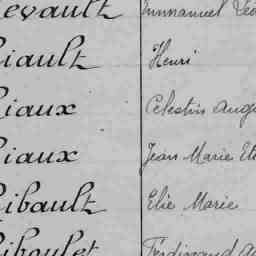 evault Emmanuel Léo
iault Henri
iaux Célestin Augu
iaux Jean Marie Et
ibault Elie Marie
iboulet Ferdinand A